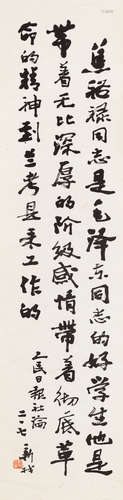 焦裕禄同志是毛泽东同志的好学生他是
带着无比深厚的阶级感情带着彻底革
命的精神到兰考县来工作的
人民日报社论